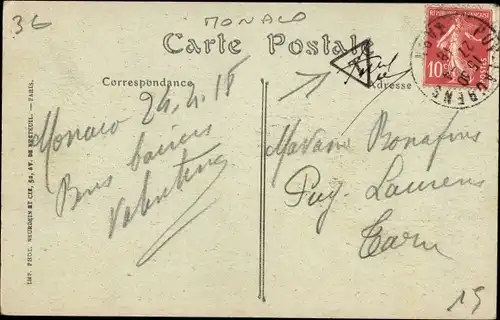 36
MONACO
Carte Postale
Correspondance
Adresse
10
PUYLAURENS
Monaco 24-4-15
Bons baisers
Valentine
Madame Bonafous
Puy Laurens
Tarn
15
IMP. PHOT. NEURDEIN ET CIE, 52, AV. DE BRETEUIL. — PARIS.